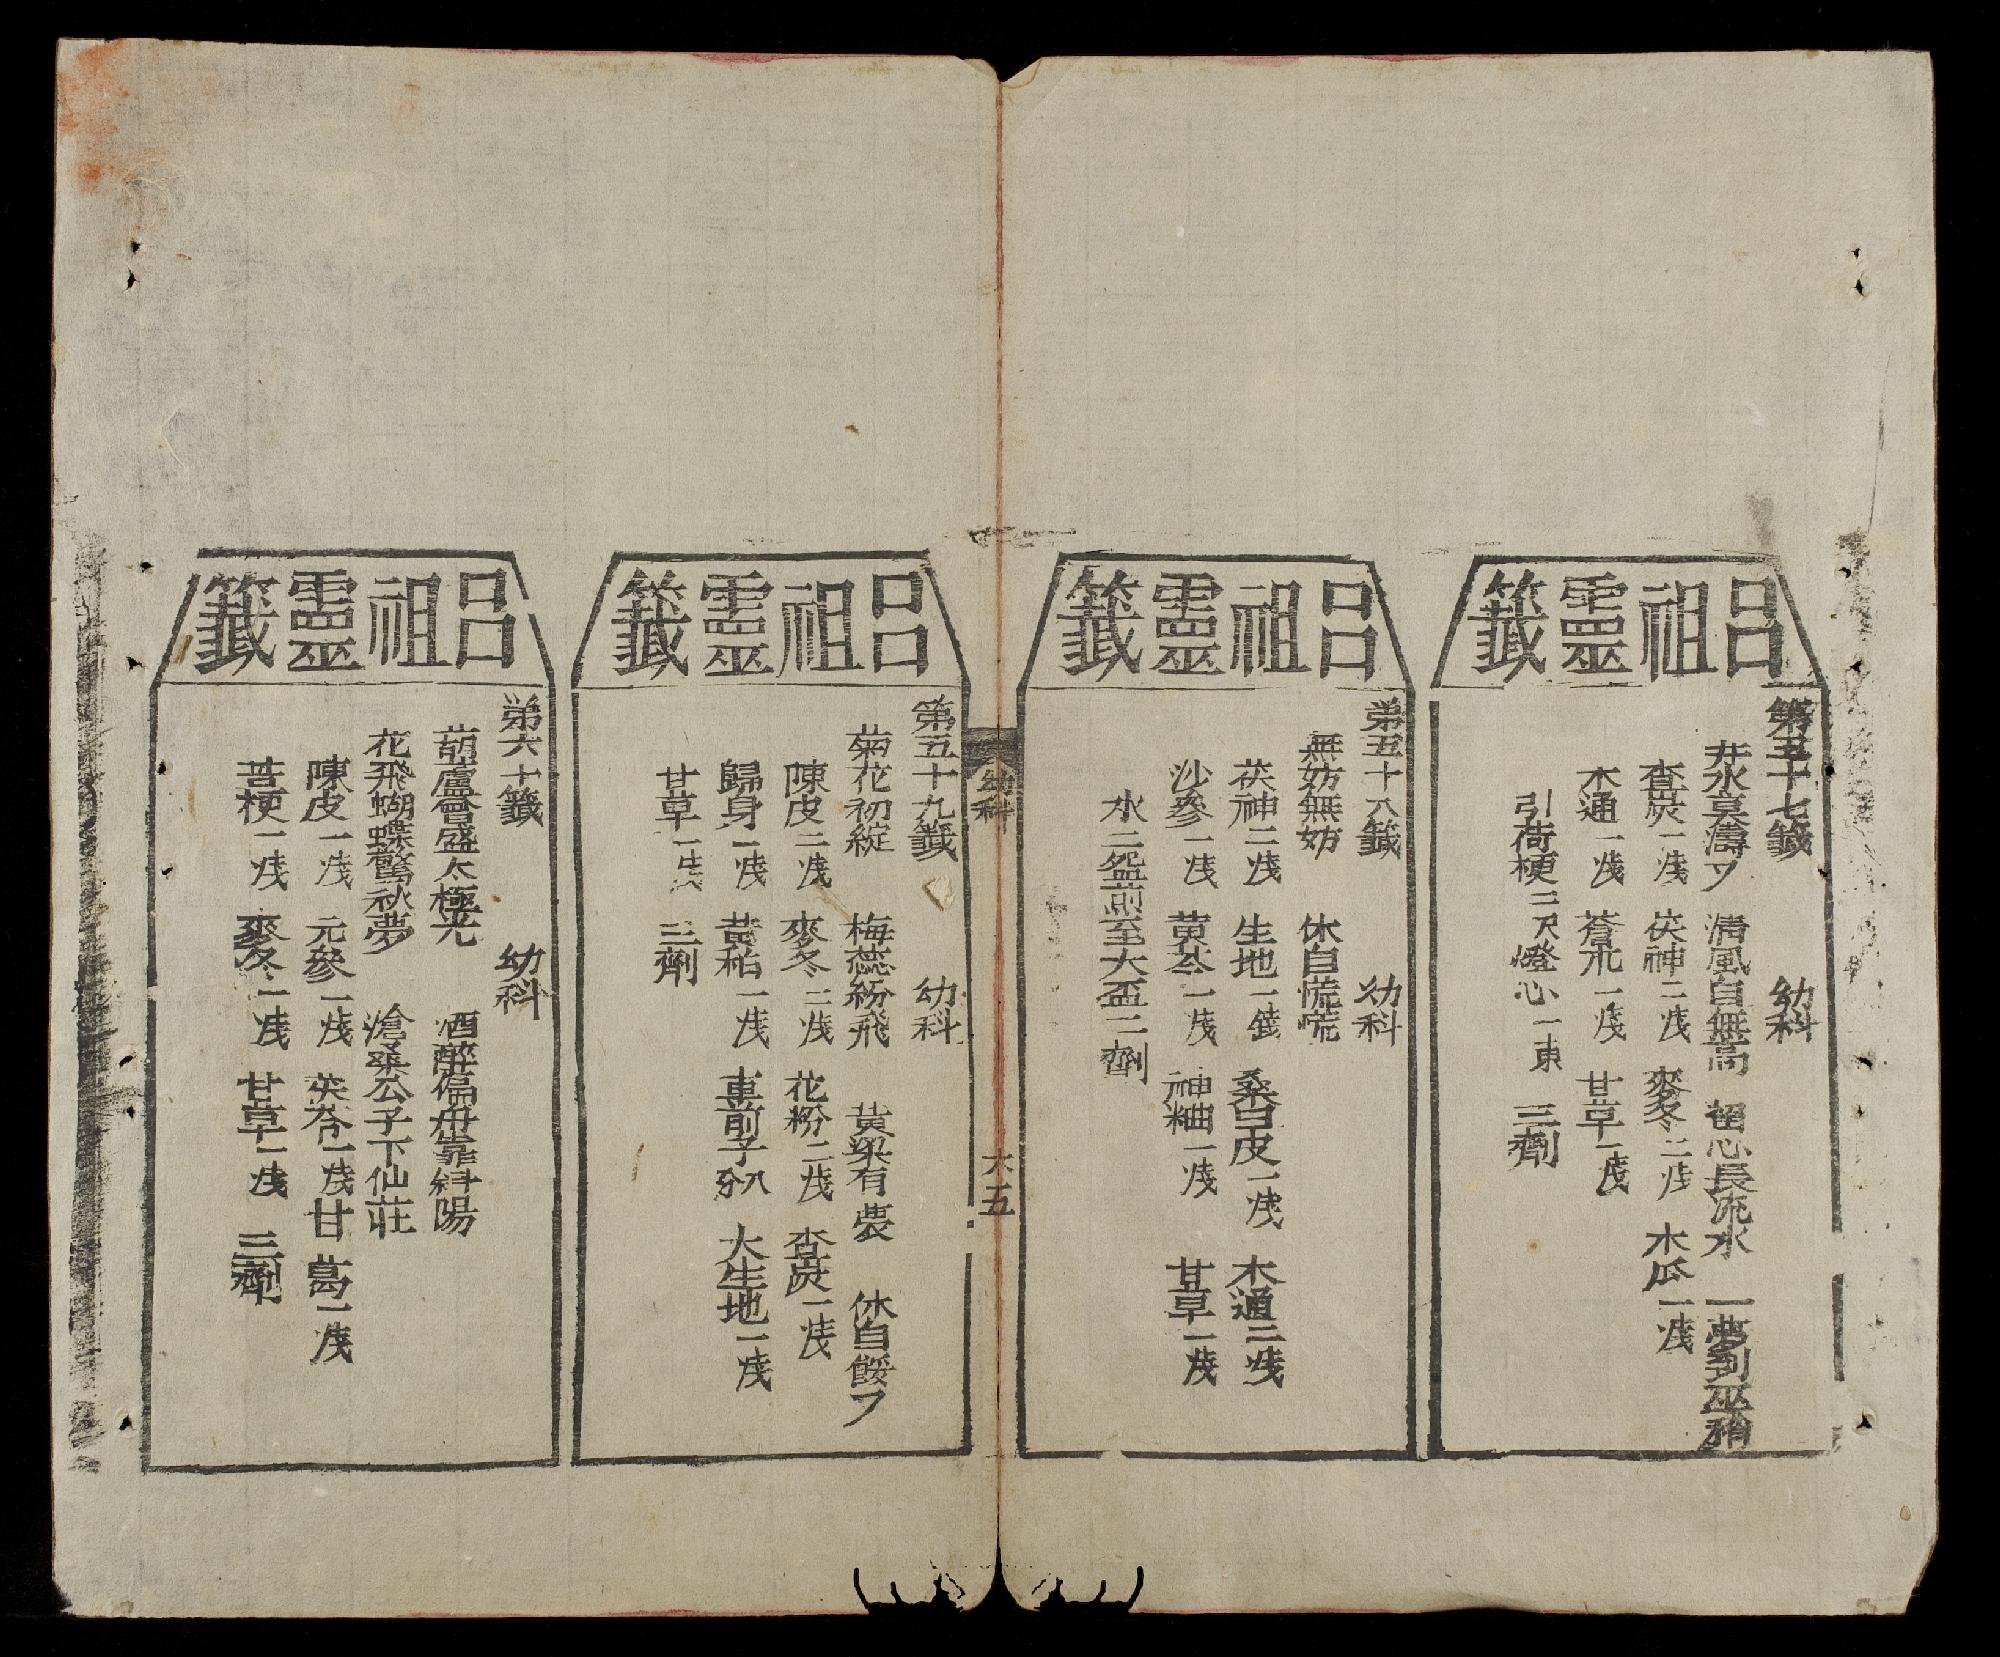 呂祖靈籤
第五十七籤 幼科
井水莫濤フ 清風自無高 智心長流水 一夢到巫稍
查炭一戔 茯神二戔 麥冬二戔 木瓜一戔
木通一戔 蒼朮一戔 甘草一戔
引荷梗三尺 燈心一束 三劑
呂祖靈籤
第五十八籤 幼科
無妨無妨 休自慌慌
茯神二戔 生地一錢 桑白皮一戔 木通二戔
沙參一戔 黃芩一戔 神粬一戔 甘草一戔
水二盌煎至大盃二劑
幼科 六五
呂祖靈籤
第五十九籤 幼科
菊花初綻 梅蕊紛飛 黃粱有喪 休自餒フ
陳皮二戔 麥冬二戔 花粉二戔 查炭一戔
歸身一戔 黃稻一戔 車前子八分 大生地一戔
甘草一戔 三劑
呂祖靈籤
第六十籤 幼科
葫蘆會盛太極光 酒醉偏舟靠斜陽
花飛蝴蝶驚秋夢 滄桑公子下仙莊
陳皮一戔 元參一戔 茯苓一戔 甘葛一戔
苦梗一戔 麥冬一戔 甘草一戔 三劑